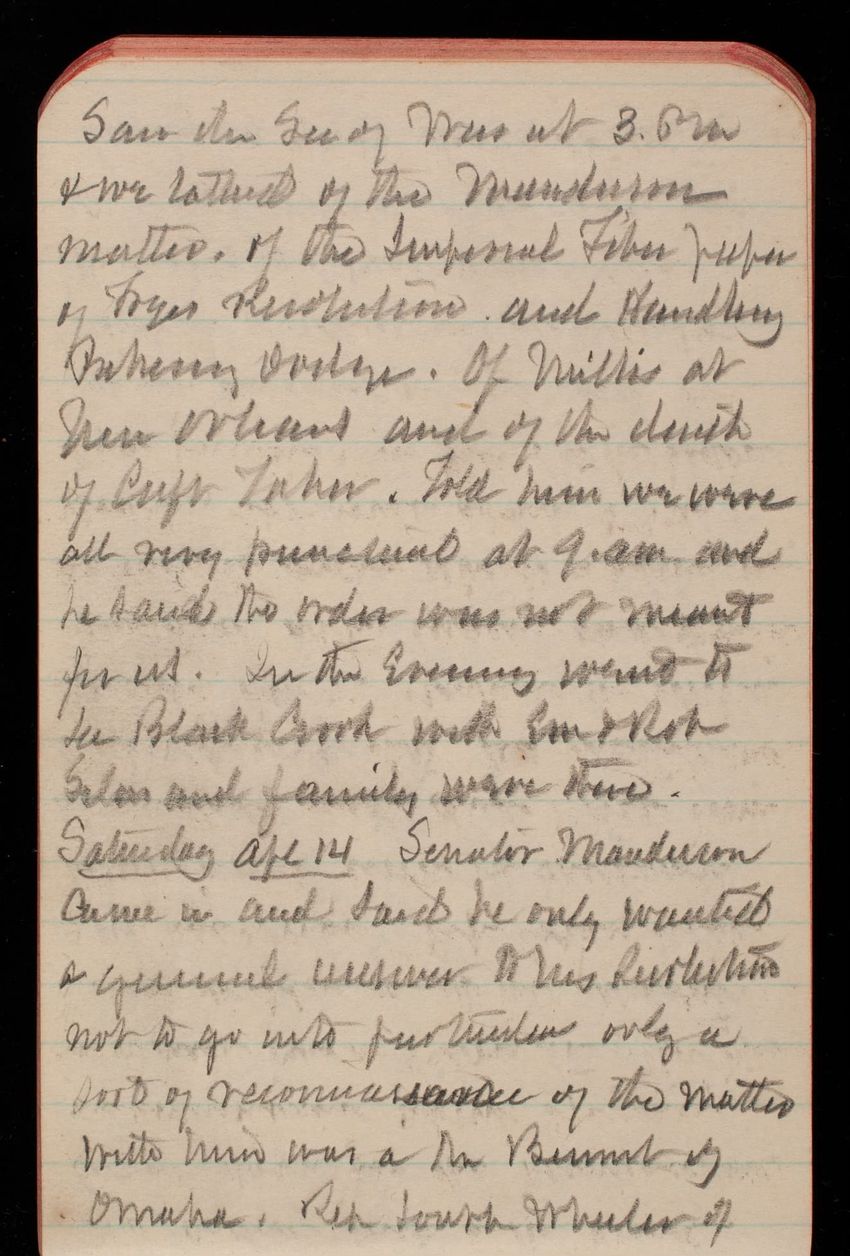 Saw the Sec of War at 3. P m
& we talked of the Manderson
matter. of the Imperial Fiber paper
of Fryes Resolution. and Handling
Dodge. Of Willis at
New Orleans and of the death
of Capt. Told him we were
all very punctual at 9. am and
he said the order was not meant
for us. In the Evening went to
see Black Crook with Em & Rob
and family were there.
Saturday Apl 14 Senator Manderson
Came in and said he only wanted
a general answer to his Resolution
not to go into particulars only a
sort of reconnaissance of the matter
With him was a Mr Bennet of
Omaha. Rep Wheeler of